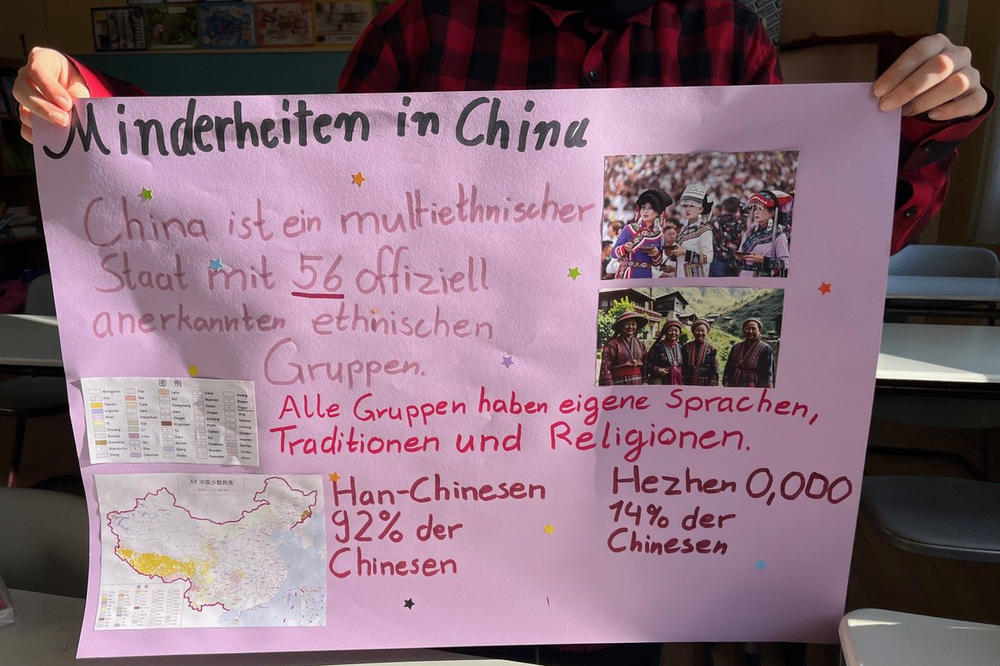 Minderheiten in China
China ist ein multiethnischer
Staat mit 56 offiziell
anerkannten ethnischen
Gruppen.
图例
Alle Gruppen haben eigene Sprachen,
Traditionen und Religionen.
中国少数民族
Han-Chinesen
92% der
Chinesen
Hezhen 0,000
14% der
Chinesen